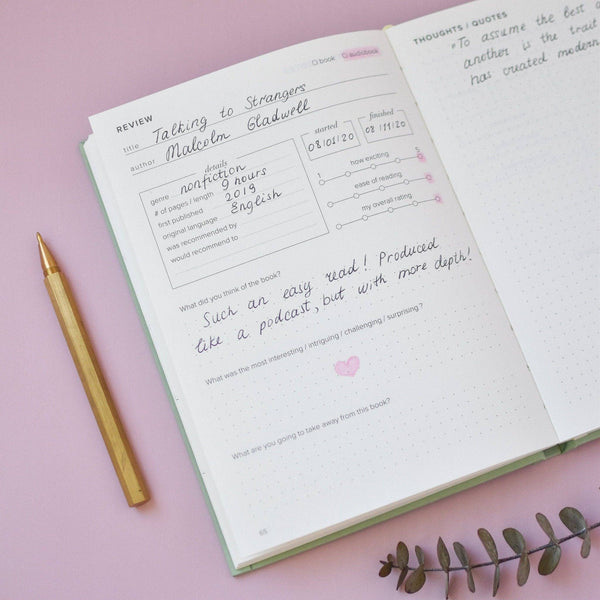 book audiobook
REVIEW
title Talking to Strangers
author Malcolm Gladwell
details
genre nonfiction
# of pages / length 9 hours
first published 2019
original language English
was recommended by
would recommend to
started finished
08/01/20 08/11/20
how exciting
1 5
ease of reading
my overall rating
What did you think of the book?
Such an easy read! Produced
like a podcast, but with more depth!
What was the most interesting / intriguing / challenging / surprising?
What are you going to take away from this book?
65
THOUGHTS / QUOTES
"To assume the best a
another is the trait
has created modern